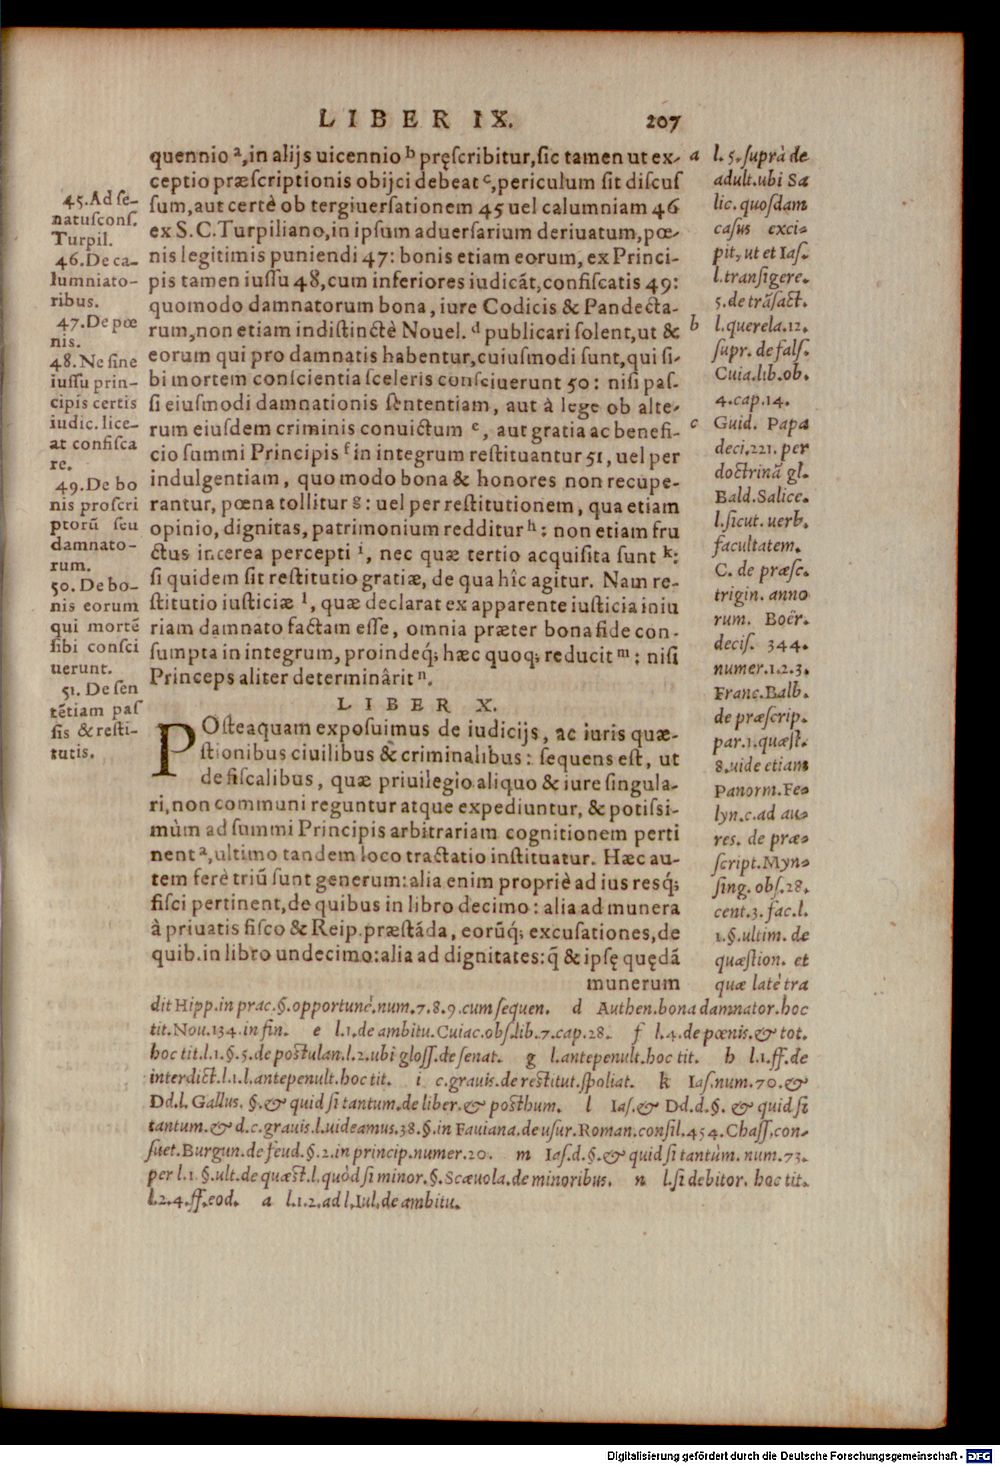 LIBER IX. 207
quennio ᵃ, in alijs uicennio ᵇ pręſcribitur, ſic tamen ut ex-
ceptio præſcriptionis obijci debeat ᶜ, periculum ſit diſcuſ
ſum, aut certè ob tergiuerſationem 45 uel calumniam 46
ex S.C. Turpiliano, in ipſum aduerſarium deriuatum, pœ-
nis legitimis puniendi 47: bonis etiam eorum, ex Princi-
pis tamen iuſſu 48, cum inferiores iudicāt, confiſcatis 49:
quomodo damnatorum bona, iure Codicis & Pandecta-
rum, non etiam indiſtinctè Nouel. ᵈ publicari ſolent, ut &
eorum qui pro damnatis habentur, cuiuſmodi ſunt, qui ſi-
bi mortem conſcientia ſceleris conſciuerunt 50: niſi paſ-
ſi eiuſmodi damnationis ſententiam, aut à lege ob alte-
rum eiuſdem criminis conuictum ᵉ, aut gratia ac benefi-
cio ſummi Principis ᶠ in integrum reſtituantur 51, uel per
indulgentiam, quo modo bona & honores non recupe-
rantur, pœna tollitur ᵍ: uel per reſtitutionem, qua etiam
opinio, dignitas, patrimonium redditur ʰ: non etiam fru
ctus incerea percepti ⁱ, nec quæ tertio acquiſita ſunt ᵏ:
ſi quidem ſit reſtitutio gratiæ, de qua hîc agitur. Nam re-
ſtitutio iuſticiæ ˡ, quæ declarat ex apparente iuſticia iniu
riam damnato factam eſſe, omnia præter bona fide con-
ſumpta in integrum, proindeq́; hæc quoq; reducit ᵐ: niſi
Princeps aliter determinârit ⁿ.
LIBER X.
POſteaquam expoſuimus de iudicijs, ac iuris quæ-
ſtionibus ciuilibus & criminalibus: ſequens eſt, ut
de fiſcalibus, quæ priuilegio aliquo & iure ſingula-
ri, non communi reguntur atque expediuntur, & potiſsi-
mùm ad ſummi Principis arbitrariam cognitionem perti
nent ᵃ, ultimo tandem loco tractatio inſtituatur. Hæc au-
tem ferè triū ſunt generum: alia enim propriè ad ius resq́;
fiſci pertinent, de quibus in libro decimo: alia ad munera
à priuatis fiſco & Reip. præſtāda, eorūq́; excuſationes, de
quib. in libro undecimo: alia ad dignitates: q̃ & ipſę quędā
munerum
45. Ad ſe-
natuſconſ.
Turpil.
46. De ca-
lumniato-
ribus.
47. De pœ
nis.
48. Ne ſine
iuſſu prin-
cipis certis
iudic. lice-
at confiſca
re.
49. De bo
nis proſcri
ptorū ſeu
damnato-
rum.
50. De bo-
nis eorum
qui mortē
ſibi conſci
uerunt.
51. De ſen
tētiam paſ
ſis & reſti-
tutis.
a l. 5. ſuprà de
adult. ubi Sa
lic. quoſdam
caſus exci-
pit, ut et Iaſ.
l. tranſigere.
5. de trāſact.
b l. querela. 12.
ſupr. de falſ.
Cuia. lib. ob.
4. cap. 14.
c Guid. Papa
deci. 221. per
doctrinā gl.
Bald. Salice.
l. ſicut. uerb.
facultatem.
C. de præſc.
trigin. anno
rum. Boër.
deciſ. 344.
numer. 1.2.3.
Franc. Balb.
de præſcrip.
par. 1. quæſt.
8. uide etiam
Panorm. Fe-
lyn. c. ad au-
res. de præ-
ſcript. Myn-
ſing. obſ. 28.
cent. 3. fac. l.
1. §. ultim. de
quæſtion. et
quæ latè tra
dit Hipp. in prac. §. opportunè. num. 7. 8. 9. cum ſequen. d Authen. bona damnator. hoc
tit. Nou. 134. in fin. e l. 1. de ambitu. Cuiac. obſ. lib. 7. cap. 28. f l. 4. de pœnis. & tot.
hoc tit. l. 1. §. 5. de poſtulan. l. 2. ubi gloſſ. de ſenat. g l. antepenult. hoc tit. h l. 1. ff. de
interdict. l. 1. l. antepenult. hoc tit. i c. grauis. de reſtitut. ſpoliat. k Iaſ. num. 70. &
Dd. l. Gallus. §. & quid ſi tantum. de liber. & poſthum. l Iaſ. & Dd. d. §. & quid ſi
tantum. & d. c. grauis. l. uideamus. 38. §. in Fauiana. de uſur. Roman. conſil. 454. Chaſſ. con-
ſuet. Burgun. de feud. §. 2. in princip. numer. 20. m Iaſ. d. §. & quid ſi tantùm. num. 73.
per l. 1. §. ult. de quæſt. l. quòd ſi minor. §. Scæuola. de minoribus. n l. ſi debitor. hoc tit.
l. 2. 4. ff. eod. a l. 1. 2. ad l. Iul. de ambitu.
Digitalisierung gefördert durch die Deutsche Forschungsgemeinschaft - DFG